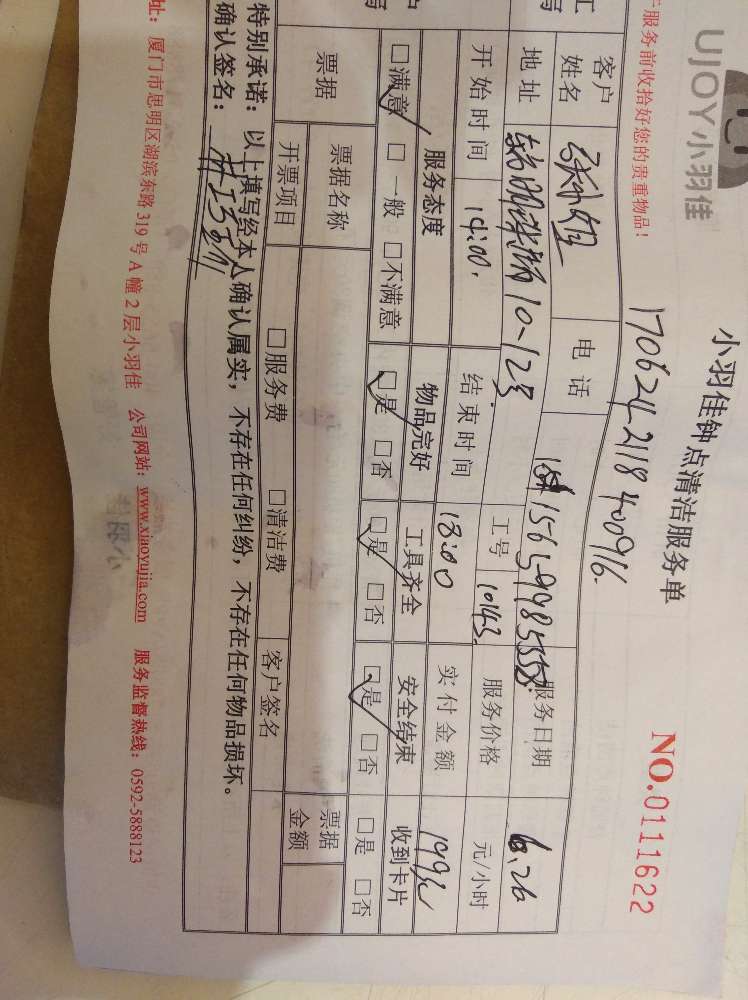 UJOY小羽佳
小羽佳钟点清洁服务单
NO.0111622
服务前收拾好您的贵重物品！
1706242118400916.
客户姓名 电话 15659985558 服务日期 6.26
地址 10-123 工号 10143 服务价格 元/小时
开始时间 14:00. 结束时间 18:00 实付金额 199元
服务态度 物品完好 工具齐全 安全结束 收到卡片
□满意 □一般 □不满意 □是 □否 □是 □否 □是 □否 □是 □否
票据 票据名称 票据金额
开票项目 □服务费 □清洁费 客户签名
特别承诺：以上填写经本人确认属实，不存在任何纠纷，不存在任何物品损坏。
确认签名：
址：厦门市思明区湖滨东路 319 号 A 幢 2 层小羽佳 公司网站：www.xiaoyujia.com 服务监督热线：0592-5888123